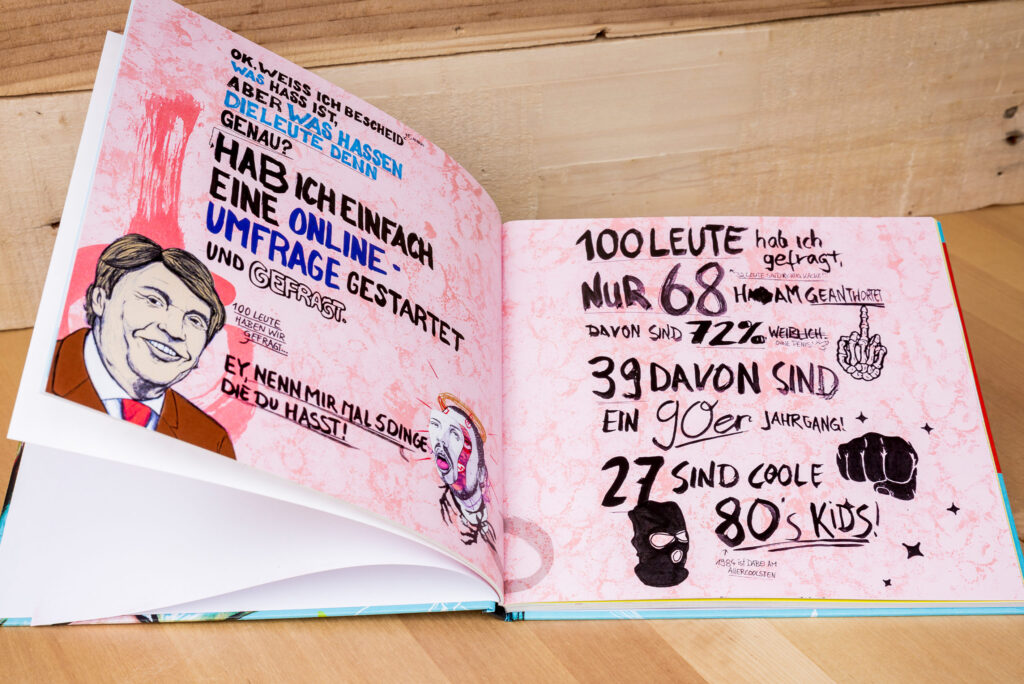 OK, WEISS ICH BESCHEID
WAS HASS IST,
ABER WAS HASSEN
DIE LEUTE DENN
GENAU?
HAB ICH EINFACH
EINE ONLINE-
UMFRAGE GESTARTET
UND GEFRAGT.
100 LEUTE
HABEN WIR
GEFRAGT...
EY, NENN MIR MAL 5 DINGE,
DIE DU HASST!
100 LEUTE hab ich
gefragt,
NUR 68 HAM GEANTWORTET
DAVON SIND 72% WEIBLICH
OHNE PENIS!
39 DAVON SIND
EIN 90er JAHRGANG!
27 SIND COOLE
80's KiDS!
1984 IST DABEI AM
ALLERCOOLSTEN